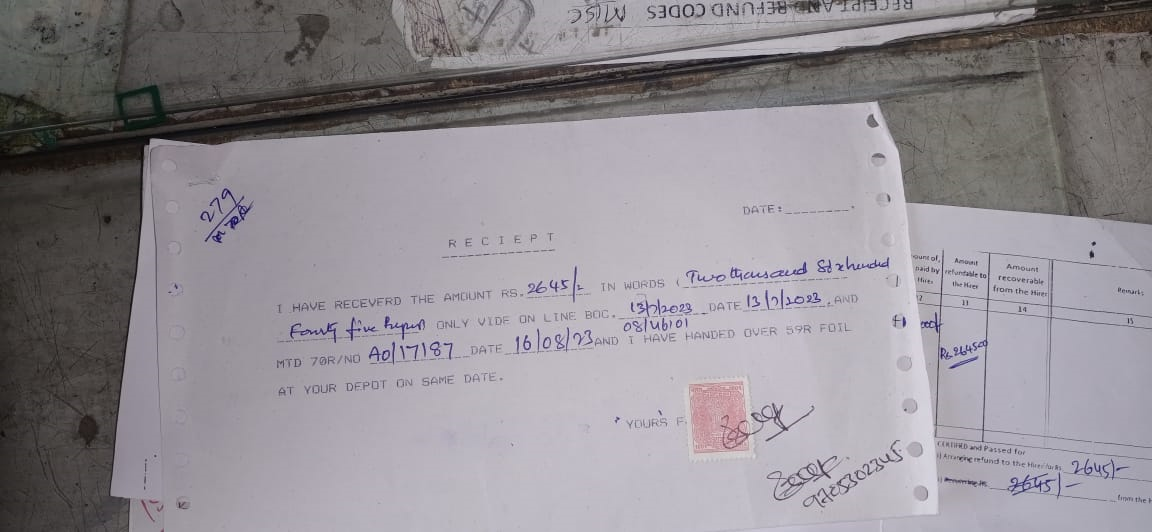 RECEIPT AND REFUND CODES MISC
279
DATE:________.
RECIEPT
I HAVE RECEVERD THE AMOUNT RS. 2645/= IN WORDS ( Two thousand Sixhended
Fourty five only VIDE ON LINE BOC. 13/7/2023 DATE 13/7/2023 .AND
08/46101
MTD 70R/NO A0/17187 DATE 16/08/23 AND I HAVE HANDED OVER 59R FOIL
AT YOUR DEPOT ON SAME DATE.
YOUR'S F
9785302345
ount of,
paid by
Hirer
Amount
refundable to
the Hirer
Amount
recoverable
from the Hirer
Remarks
12 13 14 15
Rs. 264500
CERTIFIED and Passed for
i) Arranging refund to the Hirer for Rs. 2645/-
2645/- from the H